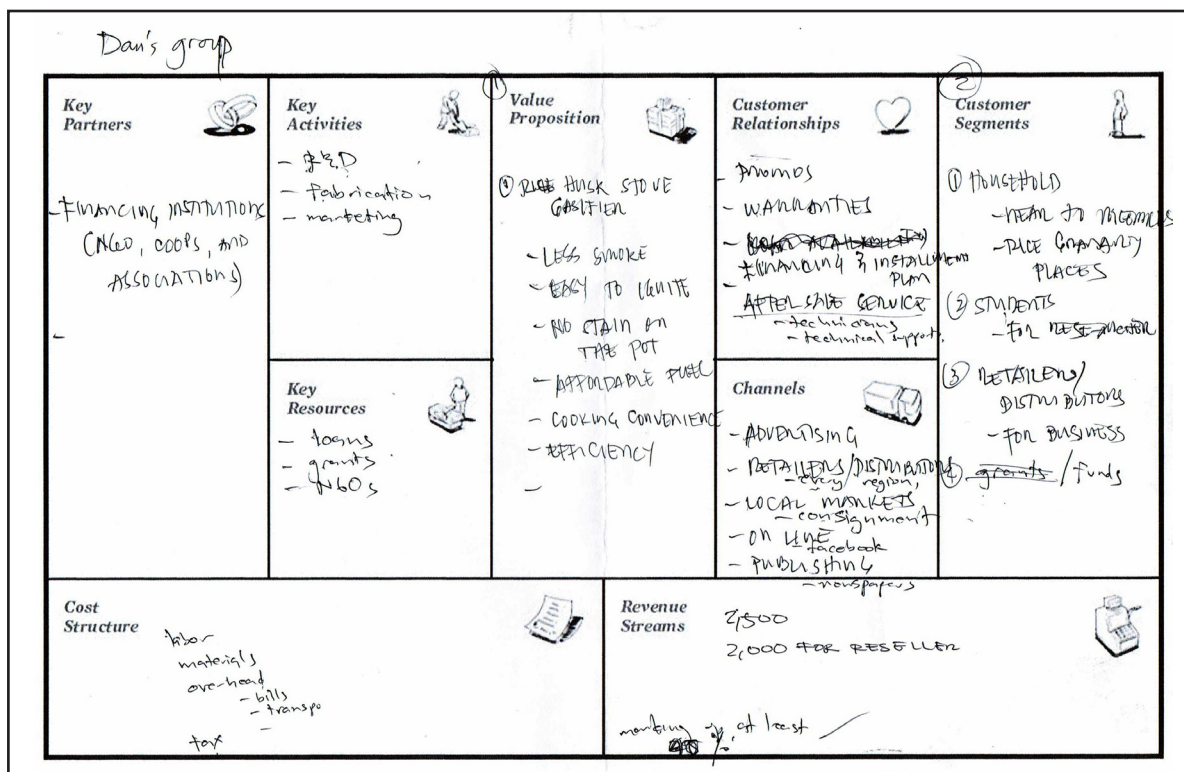 Dan's group
Key
Partners
- FINANCING INSTITUTIONS
(NGO, COOPS, AND
ASSOCIATIONS)
-
Key
Activities
- R&D
- fabrication
- marketing
Key
Resources
- loans
- grants
- NGOs
①
Value
Proposition
① RICE HUSK STOVE
GASIFIER
- LESS SMOKE
- EASY TO IGNITE
- NO STAIN ON
THE POT
- AFFORDABLE FUEL
- COOKING CONVENIENCE
- EFFICIENCY
-
Customer
Relationships
- PROMOS
- WARRANTIES
- FINANCING & INSTALLMENT
PLAN
- AFTER SALE SERVICE
- technicians
- technical support
Channels
- ADVERTISING
- RETAILERS/DISTRIBUTORS
- every region,
- LOCAL MARKETS
- consignment
- ON LINE
- facebook
- PUBLISHING
- newspapers
②
Customer
Segments
① HOUSEHOLD
- NEAR TO RICEMILLS
- RICE GRANARY
PLACES
② STUDENTS
- FOR
③ RETAILERS/
DISTRIBUTORS
- FOR BUSINESS
④ grants / funds
Cost
Structure
labor
materials
over-head
- bills
- transpo
-
tax
Revenue
Streams
2,500
2,000 FOR RESELLER
%, at least